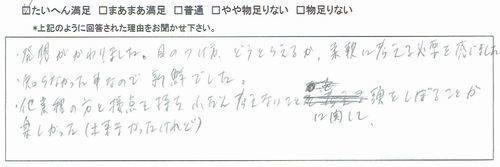 ☑たいへん満足 □まあまあ満足 □普通 □やや物足りない □物足りない
*上記のように回答された理由をお聞かせ下さい。
・発想がかわりました。目のつけ方、どうとらえるか、柔軟に考える必要を感じました
・知らなかった事なので新鮮でした。
・他業種の方と接点を持ち ふだん考えないことに関して、頭をしぼることが
楽しかった(はずかったけれど)